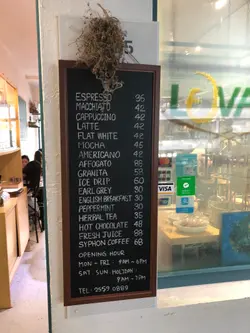 ESPRESSO 35
MACCHIATO 42
CAPPUCCINO 42
LATTE 42
FLAT WHITE 42
MOCHA 45
AMERICANO 42
AFFOGATO 85
GRANITA 58
ICE DRIP 60
EARL GREY 30
ENGLISH BREAKFAST 30
PEPPERMINT 30
HERBAL TEA 35
HOT CHOCOLATE 48
FRESH JUICE 88
SYPHON COFFEE 68
OPENING HOUR
MON - FRI : 9AM - 6PM
SAT SUN HOLIDAY :
9AM - 7PM
TEL: 2559 0888
VISA